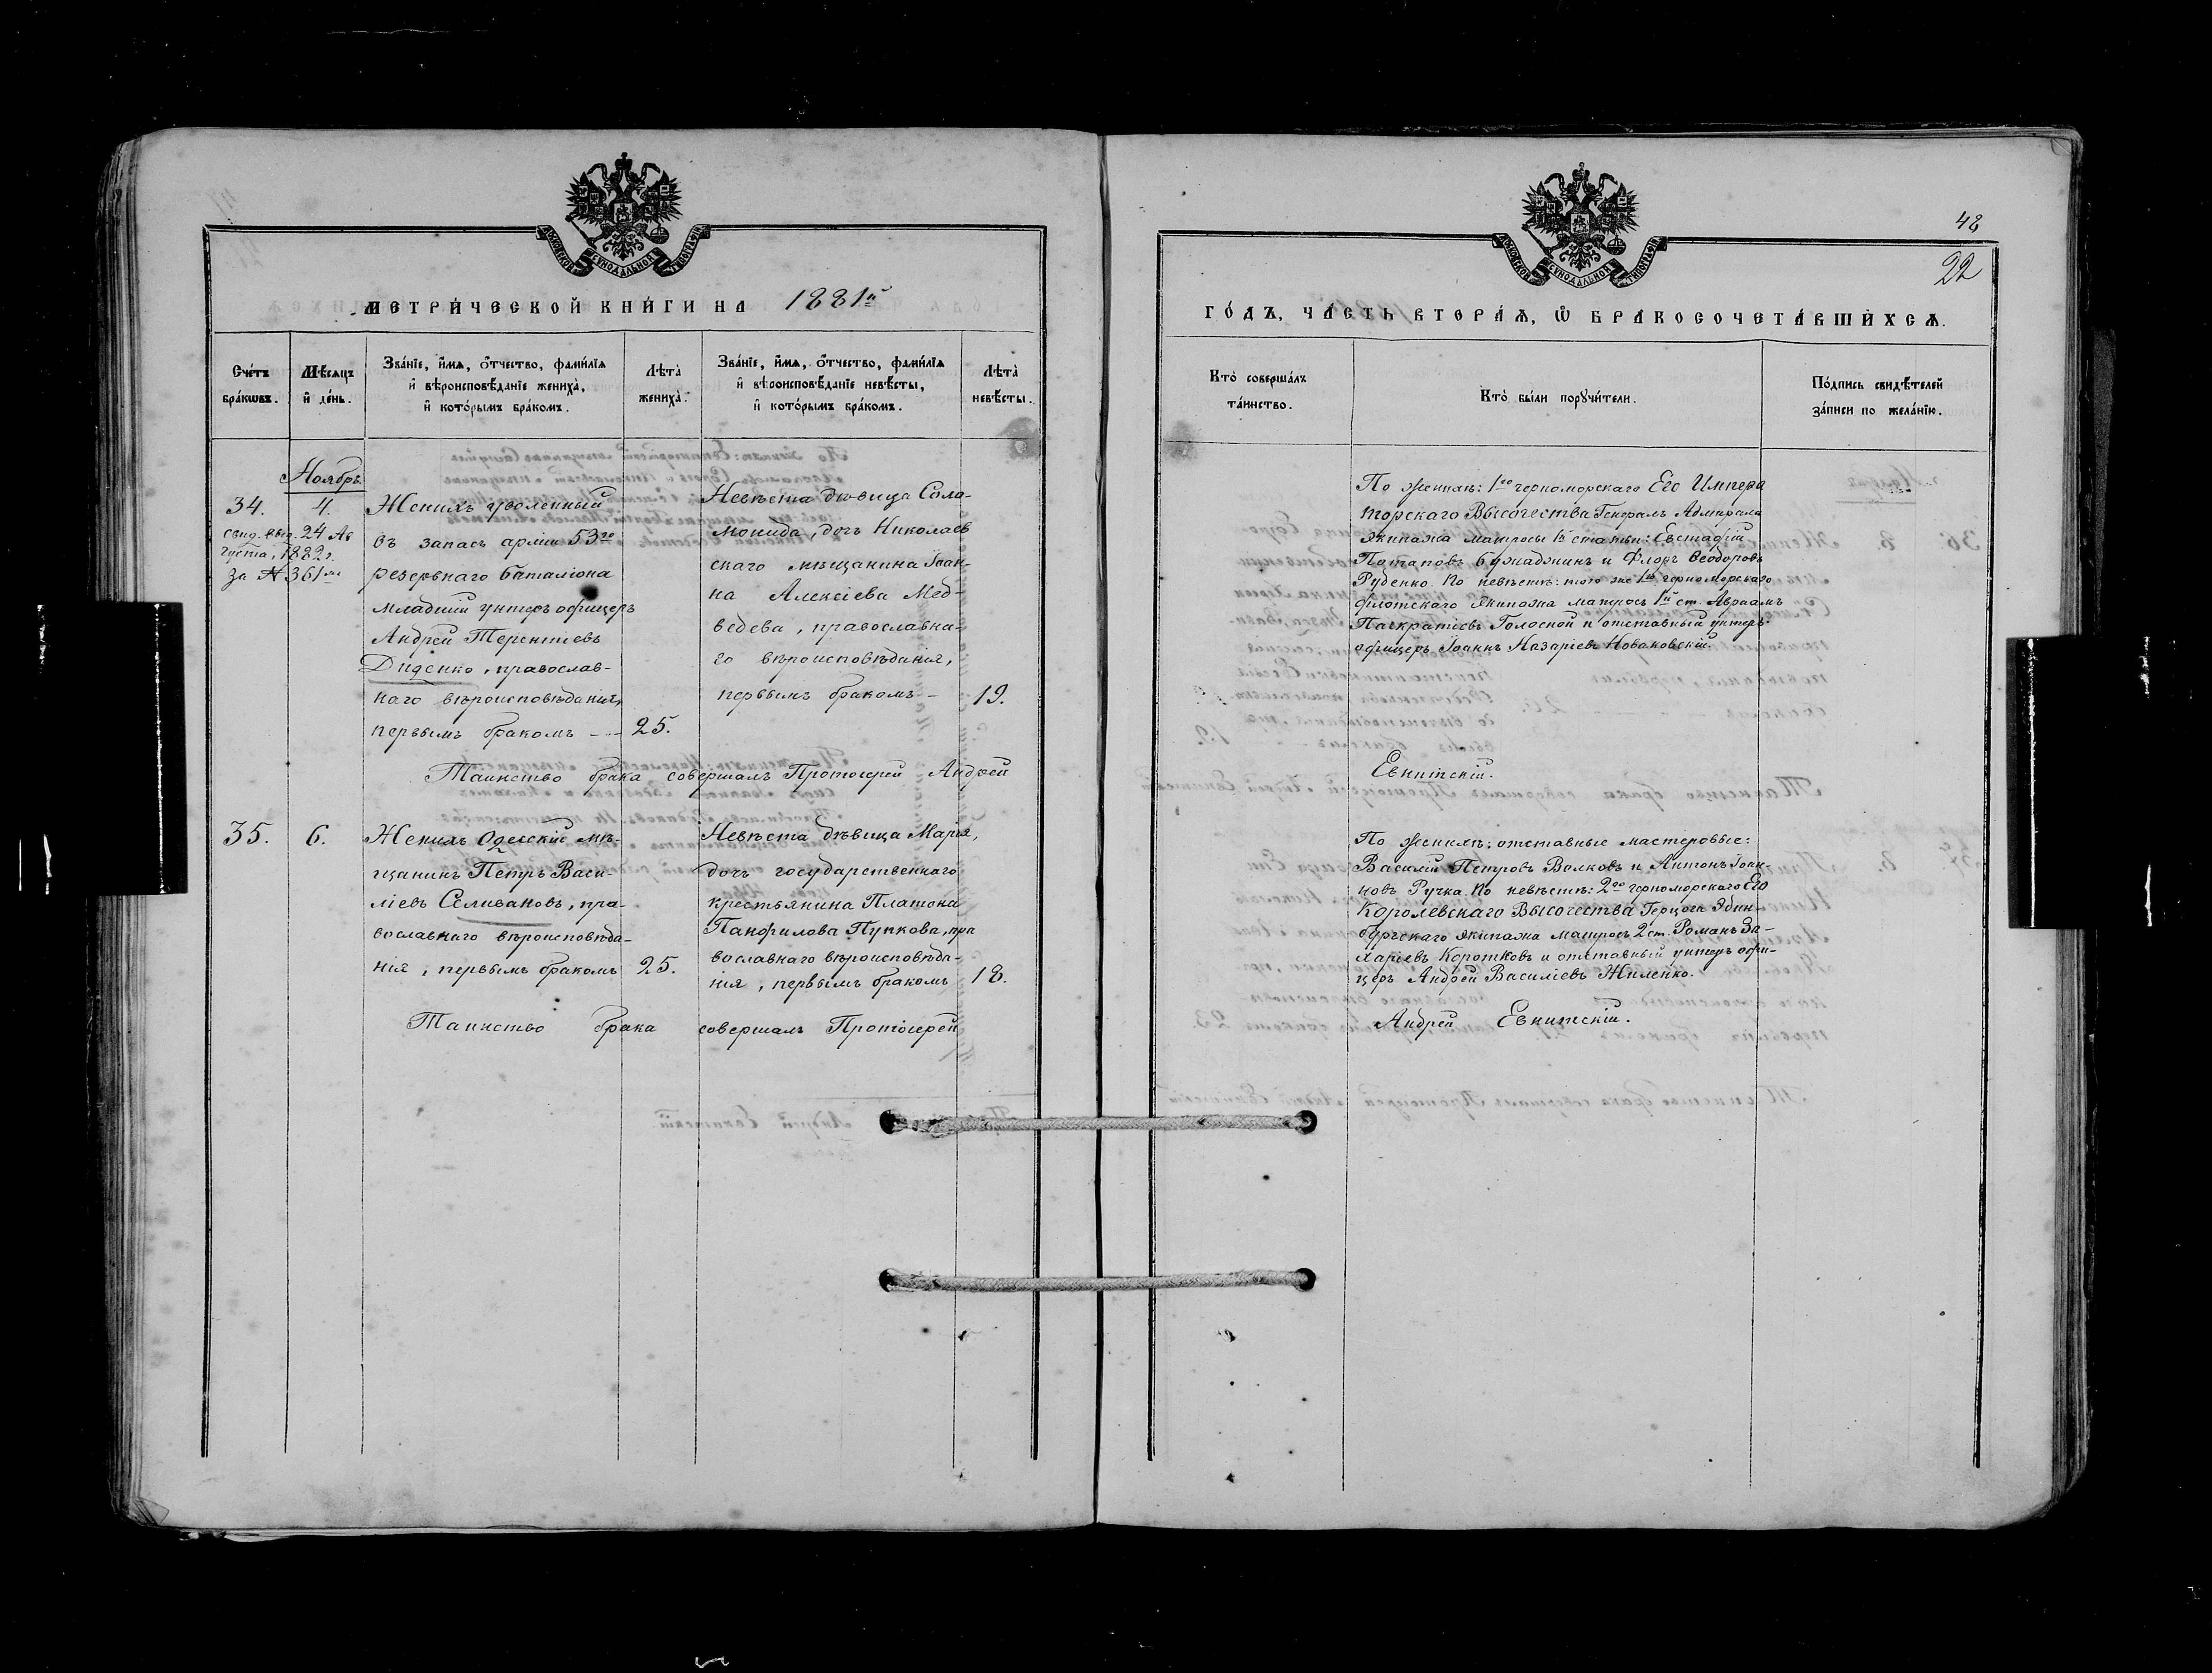 МОСКОВСКОЙ СѴНОДАЛЬНОЙ ТИПОГРАФІИ
МЕТРИ́ЧЕСКОЙ КНИ́ГИ НА 1881й
Сче́тъ бра́кѡвъ.
Мѣ́сяцъ и҆ де́нь.
Зва́нїе, и҆́мѧ, ѻ҆́тчество, фами́лїѧ
и҆ вѣ́роисповѣ́данїе жениха̀,
и҆ кото́рымъ бра́комъ.
Лѣта̀
жениха̀.
Зва́нїе, и҆́мѧ, ѻ҆́тчество, фами́лїѧ
и҆ вѣ́роисповѣ́данїе невѣ́сты,
и҆ кото́рымъ бра́комъ.
Лѣта̀
невѣ́сты.
Ноябрь
34. 4.
свид. выд. 24 Ав
густа, 1882 г.
за № 361м
Женихъ уволенный
въ запасъ арміи 53го
резервнаго баталіона
младшій унтеръ офицеръ
Андрей Терентіевъ
Диденко, православ-
наго вѣроисповѣданія,
первымъ бракомъ - - 25.
Невѣста дѣвица Соло-
монида, дочь Николаев
скаго мѣщанина Іоан-
на Алексіева Мед-
ведева, православна-
го вѣроисповѣданія,
первымъ бракомъ - 19.
Таинство брака совершалъ Протоіерей Андрей
35. 6.
Женихъ Одесскій мѣ-
щанинъ Петръ Васи-
ліевъ Селивановъ, пра-
вославнаго вѣроисповѣда-
нія, первымъ бракомъ 25.
Невѣста дѣвица Марія,
дочь государственнаго
крестьянина Платона
Панфилова Пупкова, пра
вославнаго вѣроисповѣда-
нія, первымъ бракомъ 18.
Таинство брака совершалъ Протоіерей
48
22
МОСКОВСКОЙ СѴНОДАЛЬНОЙ ТИПОГРАФІИ
ГО́ДЪ, ЧА́СТЬ ВТОРА́Ѧ, Ѽ БРАКОСОЧЕТА́ВШИХСѦ.
Кто̀ соверша́лъ
та́инство.
Кто̀ бы́ли порꙋчи́тели.
По́дпись свидѣ́телей
за́писи по жела́нїю.
По женихѣ: 1го черноморскаго Его Импера
торскаго Высочества Генералъ Адмирала
экипажа матросы 1й статьи: Евстафій
Потаповъ Бужаджинъ и Флоръ Ѳеодоровъ
Руденко. По невѣстѣ: того же 1го черноморскаго
флотскаго экипажа матросъ 1й ст. Авраамъ
Панкратіевъ Голосной и отставный унтеръ-
офицеръ Іоаннъ Назаріевъ Новаковскій.
Евнитскій.
По женихѣ: отставные мастеровые:
Василій Петровъ Волковъ и Антонъ Іоан-
новъ Ручка. По невѣстѣ: 2го черноморскаго Его
Королевскаго Высочества Герцога Эдин-
бургскаго экипажа матросъ 2 ст. Романъ За-
харіевъ Коротковъ и отставный унтеръ офи-
церъ Андрей Василіевъ Жиленко.
Андрей Евнитскій.